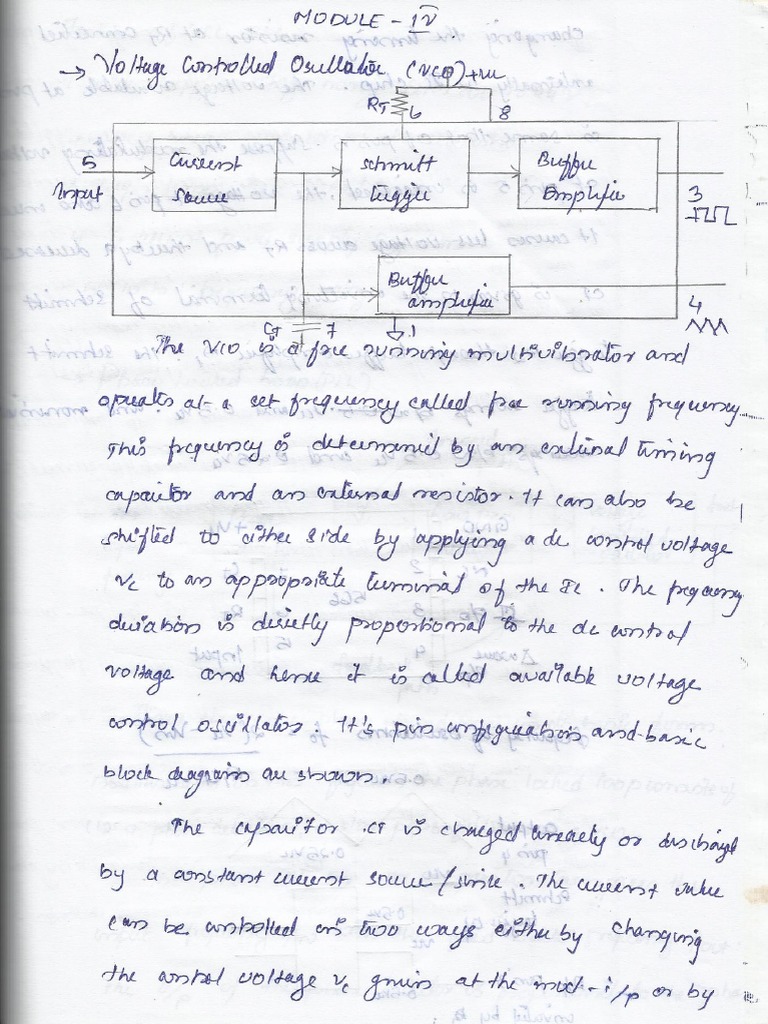 MODULE - IV
→ Voltage Controlled Oscillator (VCO) +Vcc
RT 6 8
5 Current Schmitt Buffer
Input Source trigger Amplifier 3
Buffer
amplifier 4
CT 7 1
The VCO is a free running multivibrator and
operates at a set frequency called free running frequency.
This frequency is determined by an external timing
capacitor and an external resistor. It can also be
shifted to either side by applying a dc control voltage
Vc to an appropriate terminal of the IC. The frequency
deviation is directly proportional to the dc control
voltage and hence it is called available voltage
control oscillator. It's pin configuration and basic
block diagram are shown.
The capacitor CT is charged linearly or discharged
by a constant current source/sink. The current value
can be controlled in two ways either by changing
the control voltage Vc given at the mod- i/p or by